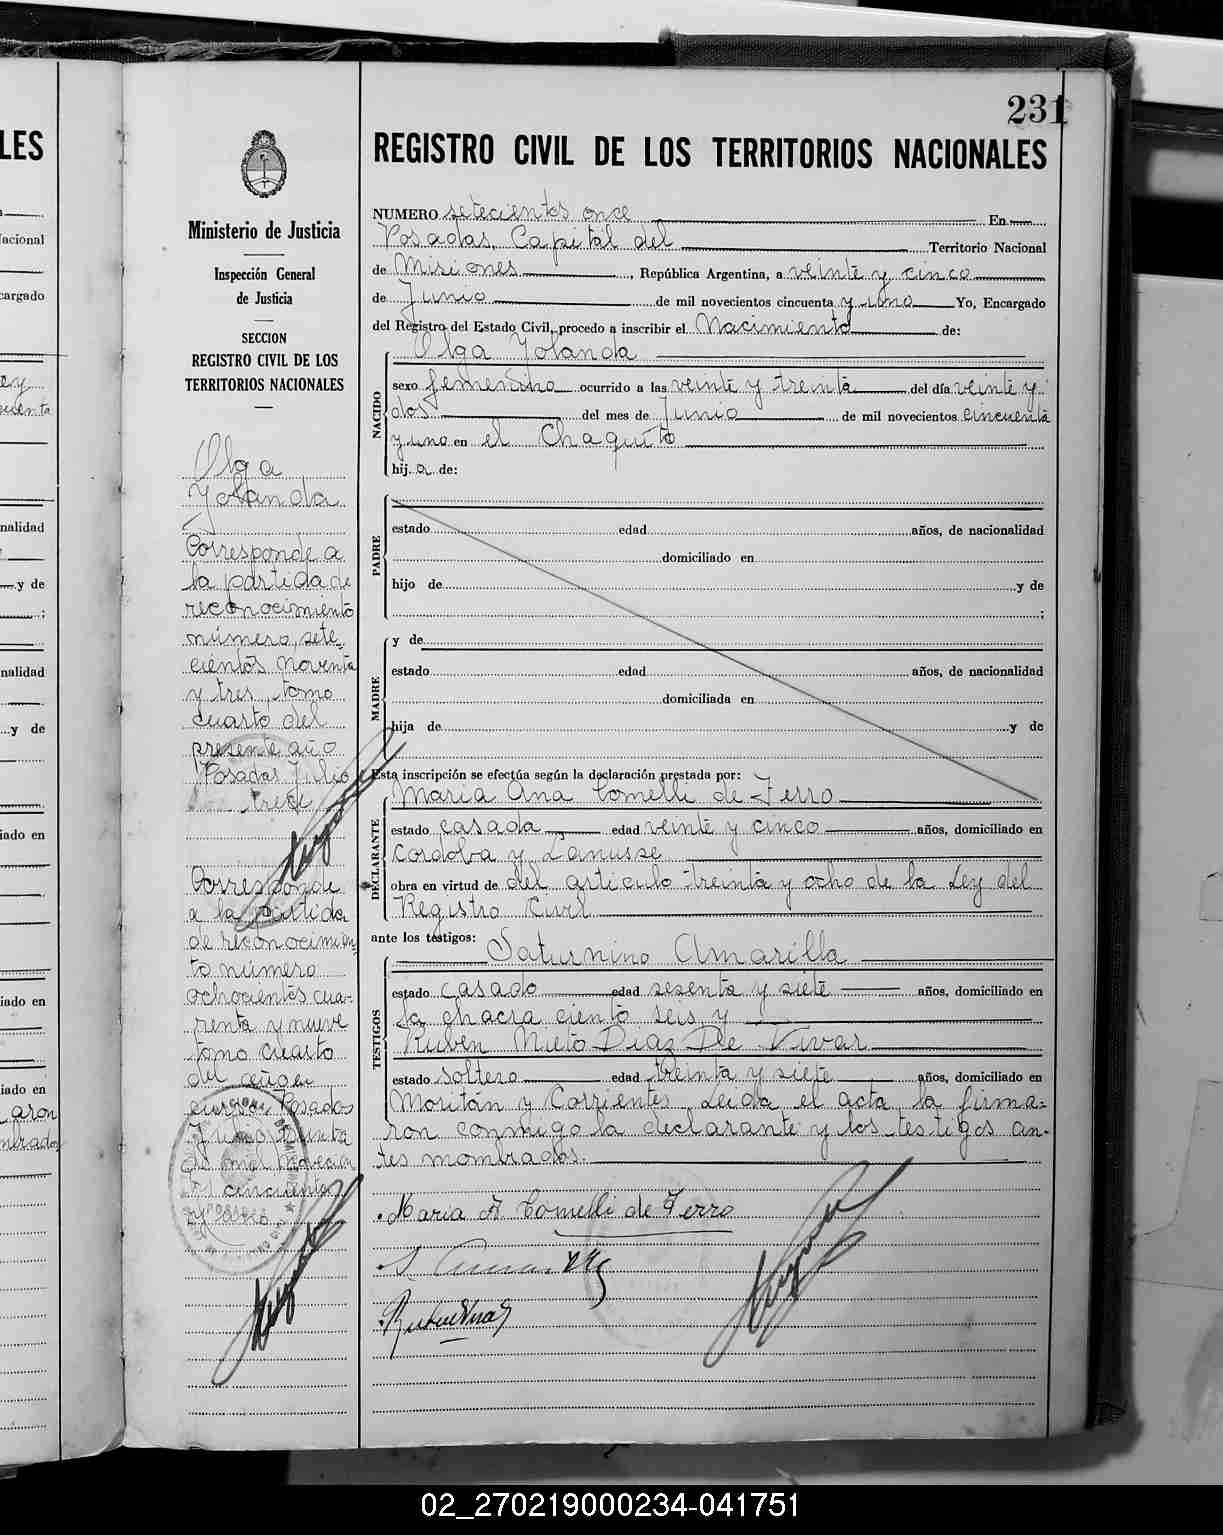 231
LES
REGISTRO CIVIL DE LOS TERRITORIOS NACIONALES
Ministerio de Justicia
Inspección General
de Justicia
SECCION
REGISTRO CIVIL DE LOS
TERRITORIOS NACIONALES
Olga
Yolanda
Corresponde a
la partida de
reconocimiento
número sete-
cientos noventa
y tres tomo
cuarto del
presente año
Posadas Julio
trece
Corresponde
a la partida
de reconocimien-
to número
ochocientos cua-
renta y nueve
tomo cuarto
del
Posadas
Julio
de mil novecien
tos cincuenta
y uno
NUMERO setecientos once En
Posadas, Capital del Territorio Nacional
de Misiones, República Argentina, a veinte y cinco
de Junio de mil novecientos cincuenta y uno Yo, Encargado
del Registro del Estado Civil, procedo a inscribir el Nacimiento de:
NACIDO
Olga Yolanda
sexo femenino ocurrido a las veinte y treinta del día veinte y
dos del mes de Junio de mil novecientos cincuenta
y uno en el Chaquito
hij a de:
PADRE
estado edad años, de nacionalidad
domiciliado en
hijo de y de
;
MADRE
y de
estado edad años, de nacionalidad
domiciliada en
hija de y de
Esta inscripción se efectúa según la declaración prestada por:
DECLARANTE
Maria Ana Comelli de Ferro
estado casada edad veinte y cinco años, domiciliado en
Cordoba y Lanusse
obra en virtud de del articulo treinta y ocho de la Ley del
Registro Civil
ante los testigos:
TESTIGOS
Saturnino Amarilla
estado casado edad sesenta y siete años, domiciliado en
la chacra ciento seis y
Rubén Nieto Diaz De Vivar
estado soltero edad treinta y siete años, domiciliado en
Moritán y Corrientes. Leida el acta, la firma-
ron conmigo la declarante y los testigos an-
tes nombrados.
Maria A Comelli de Ferro
02_270219000234-041751